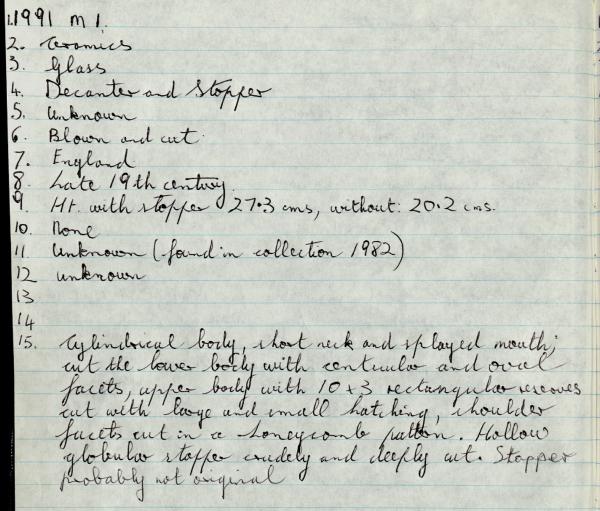 1. 1991 M 1.
2. Ceramics
3. Glass
4. Decanter and Stopper
5. Unknown
6. Blown and cut.
7. England
8. Late 19th century.
9 Ht. with stopper 27.3 cms, without: 20.2 cms.
10. None
11 Unknown (found in collection 1982)
12 unknown
13
14
15. Cylindrical body, short neck and splayed mouth;
cut the lower body with lenticular and oval
facets, upper body with 10 x 3 rectangular reserves
cut with large and small hatching, shoulder
facets cut in a honeycomb pattern. Hollow
globular stopper crudely and deeply cut. Stopper
probably not original